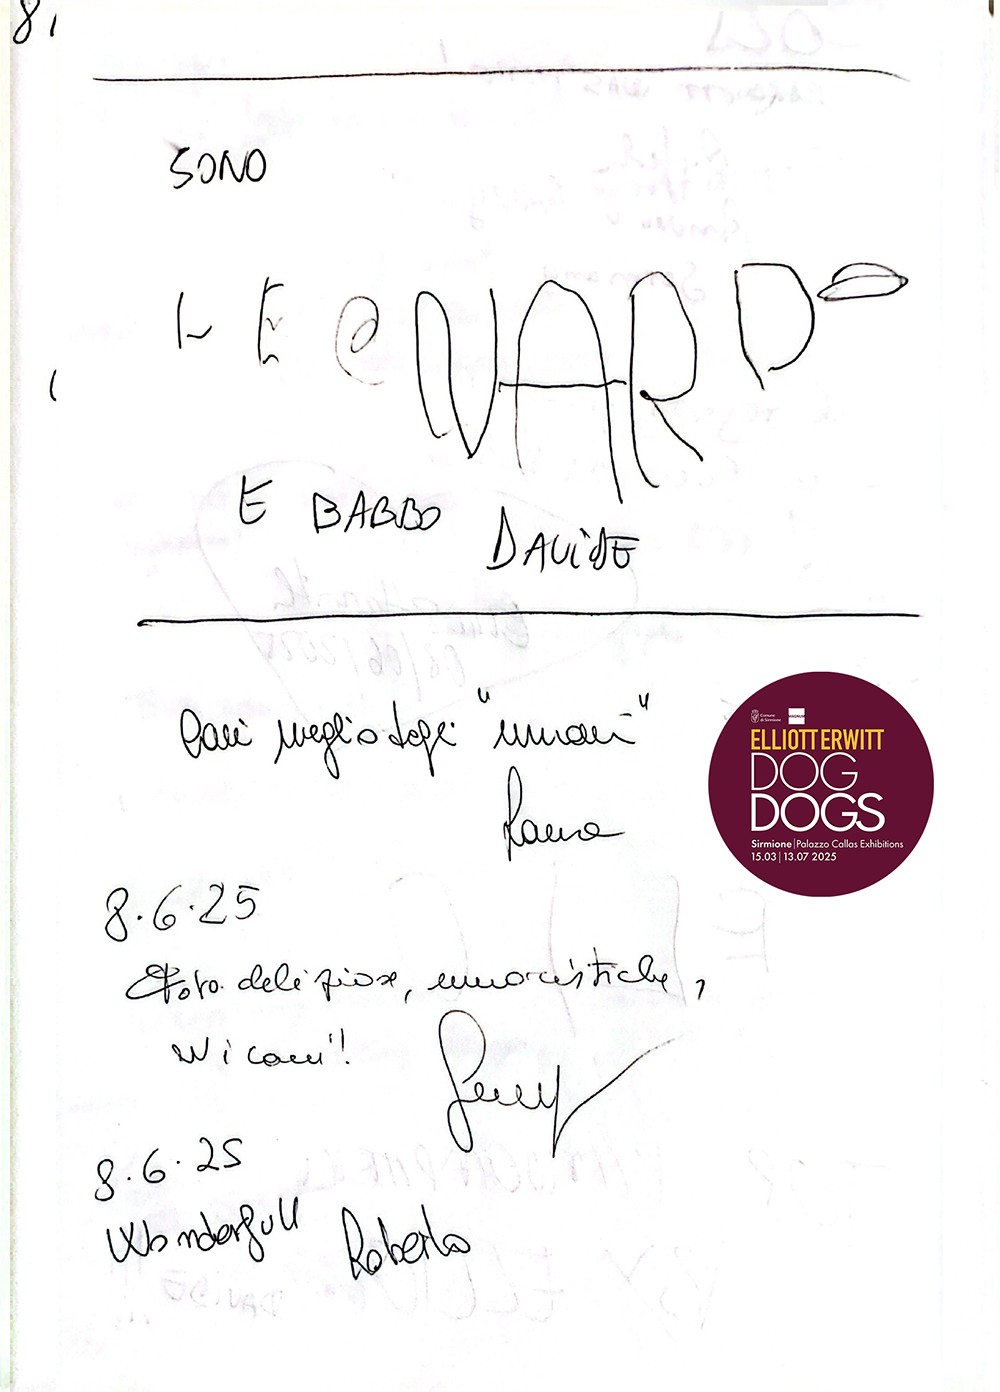 8
SONO
LEONARDO
E BABBO
DAVIDE
Cani meglio degli "umani"
8.6.25
Foto deliziose, umoristiche,
W i cani!
8.6.25
Wonderfull Roberto
Comune
di Sirmione
MAGNUM
ELLIOTT ERWITT
DOG
DOGS
Sirmione | Palazzo Callas Exhibitions
15.03 | 13.07 2025